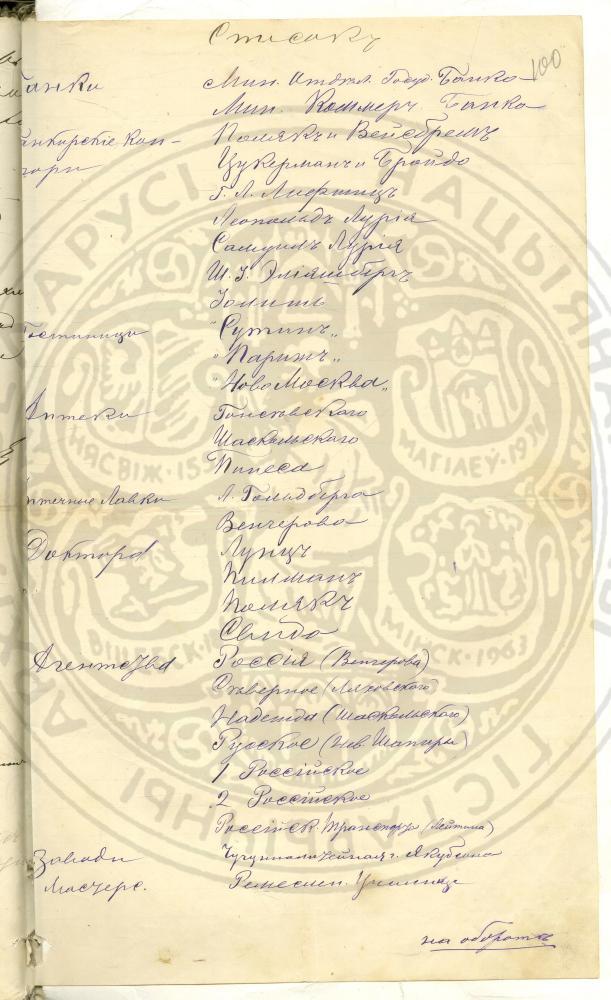 Списокъ
100
Банки Мин. Отдѣл. Госуд. Банка
Мин. Коммерч. Банка
Банкирскіе Кон- Полякъ и Вейсбремъ
торы Цукерманъ и Бройдо
Г. Л. Лифшицъ
Леопольдъ Лурія
Самуилъ Лурія
Ш. З. Эліяшбергъ
Гостиницы "Сутинъ"
"Парижъ"
"НовоМосква"
Аптеки
Шаскольскаго
Пинеса
Аптечные Лавки Л. Гольдберга
Венгерова
Доктора Лунцъ
Полякъ
Свида
Агентства Россія (Венгерова)
Сѣверное (Ляховскаго)
Надежда (Шаскольскаго)
Русское (Нев. Шапиры)
1 Россійское
2 Россійское
Россійск. Транспорт.
Заводы Якубсона
Мастерс. Ремеслен. Училище
на оборотѣ